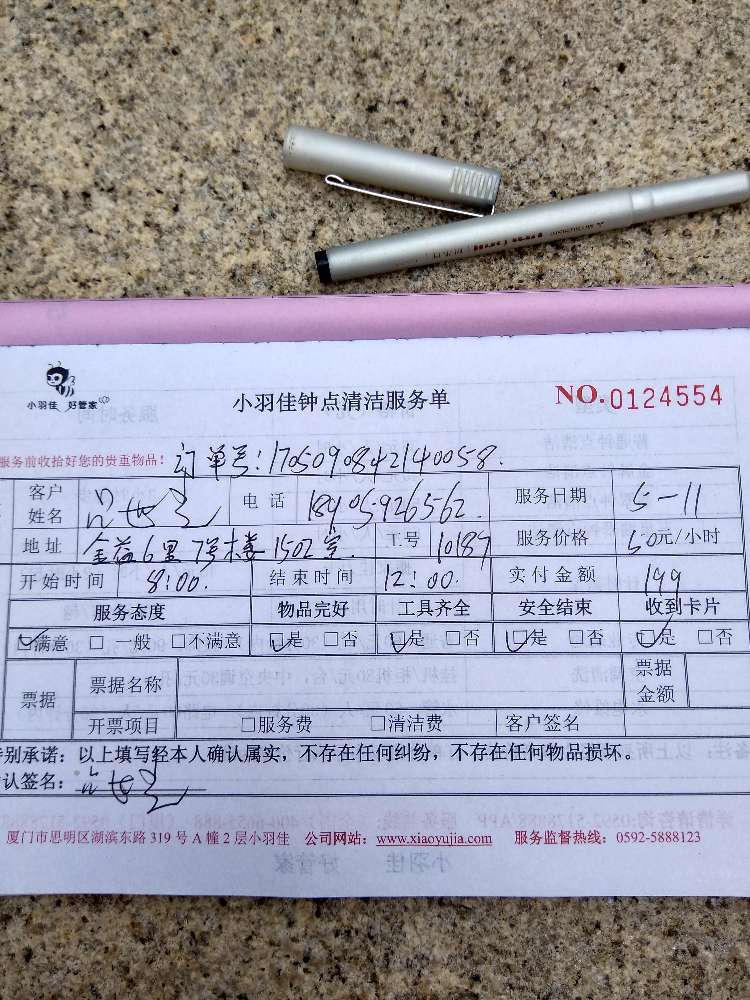 小羽佳 好管家
小羽佳钟点清洁服务单
NO.0124554
服务前收拾好您的贵重物品！ 订单号：1705090842140058.
客户姓名 电话 18905926562. 服务日期 5-11
地址 金益6里7号楼1502室 工号 10187 服务价格 50元/小时
开始时间 8:00. 结束时间 12:00. 实付金额 199
服务态度 物品完好 工具齐全 安全结束 收到卡片
☑满意 □一般 □不满意 ☑是 □否 ☑是 □否 ☑是 □否 ☑是 □否
票据 票据名称 票据金额
开票项目 □服务费 □清洁费 客户签名
别承诺：以上填写经本人确认属实，不存在任何纠纷，不存在任何物品损坏。
认签名：
厦门市思明区湖滨东路 319 号 A 幢 2 层小羽佳 公司网站：www.xiaoyujia.com 服务监督热线：0592-5888123